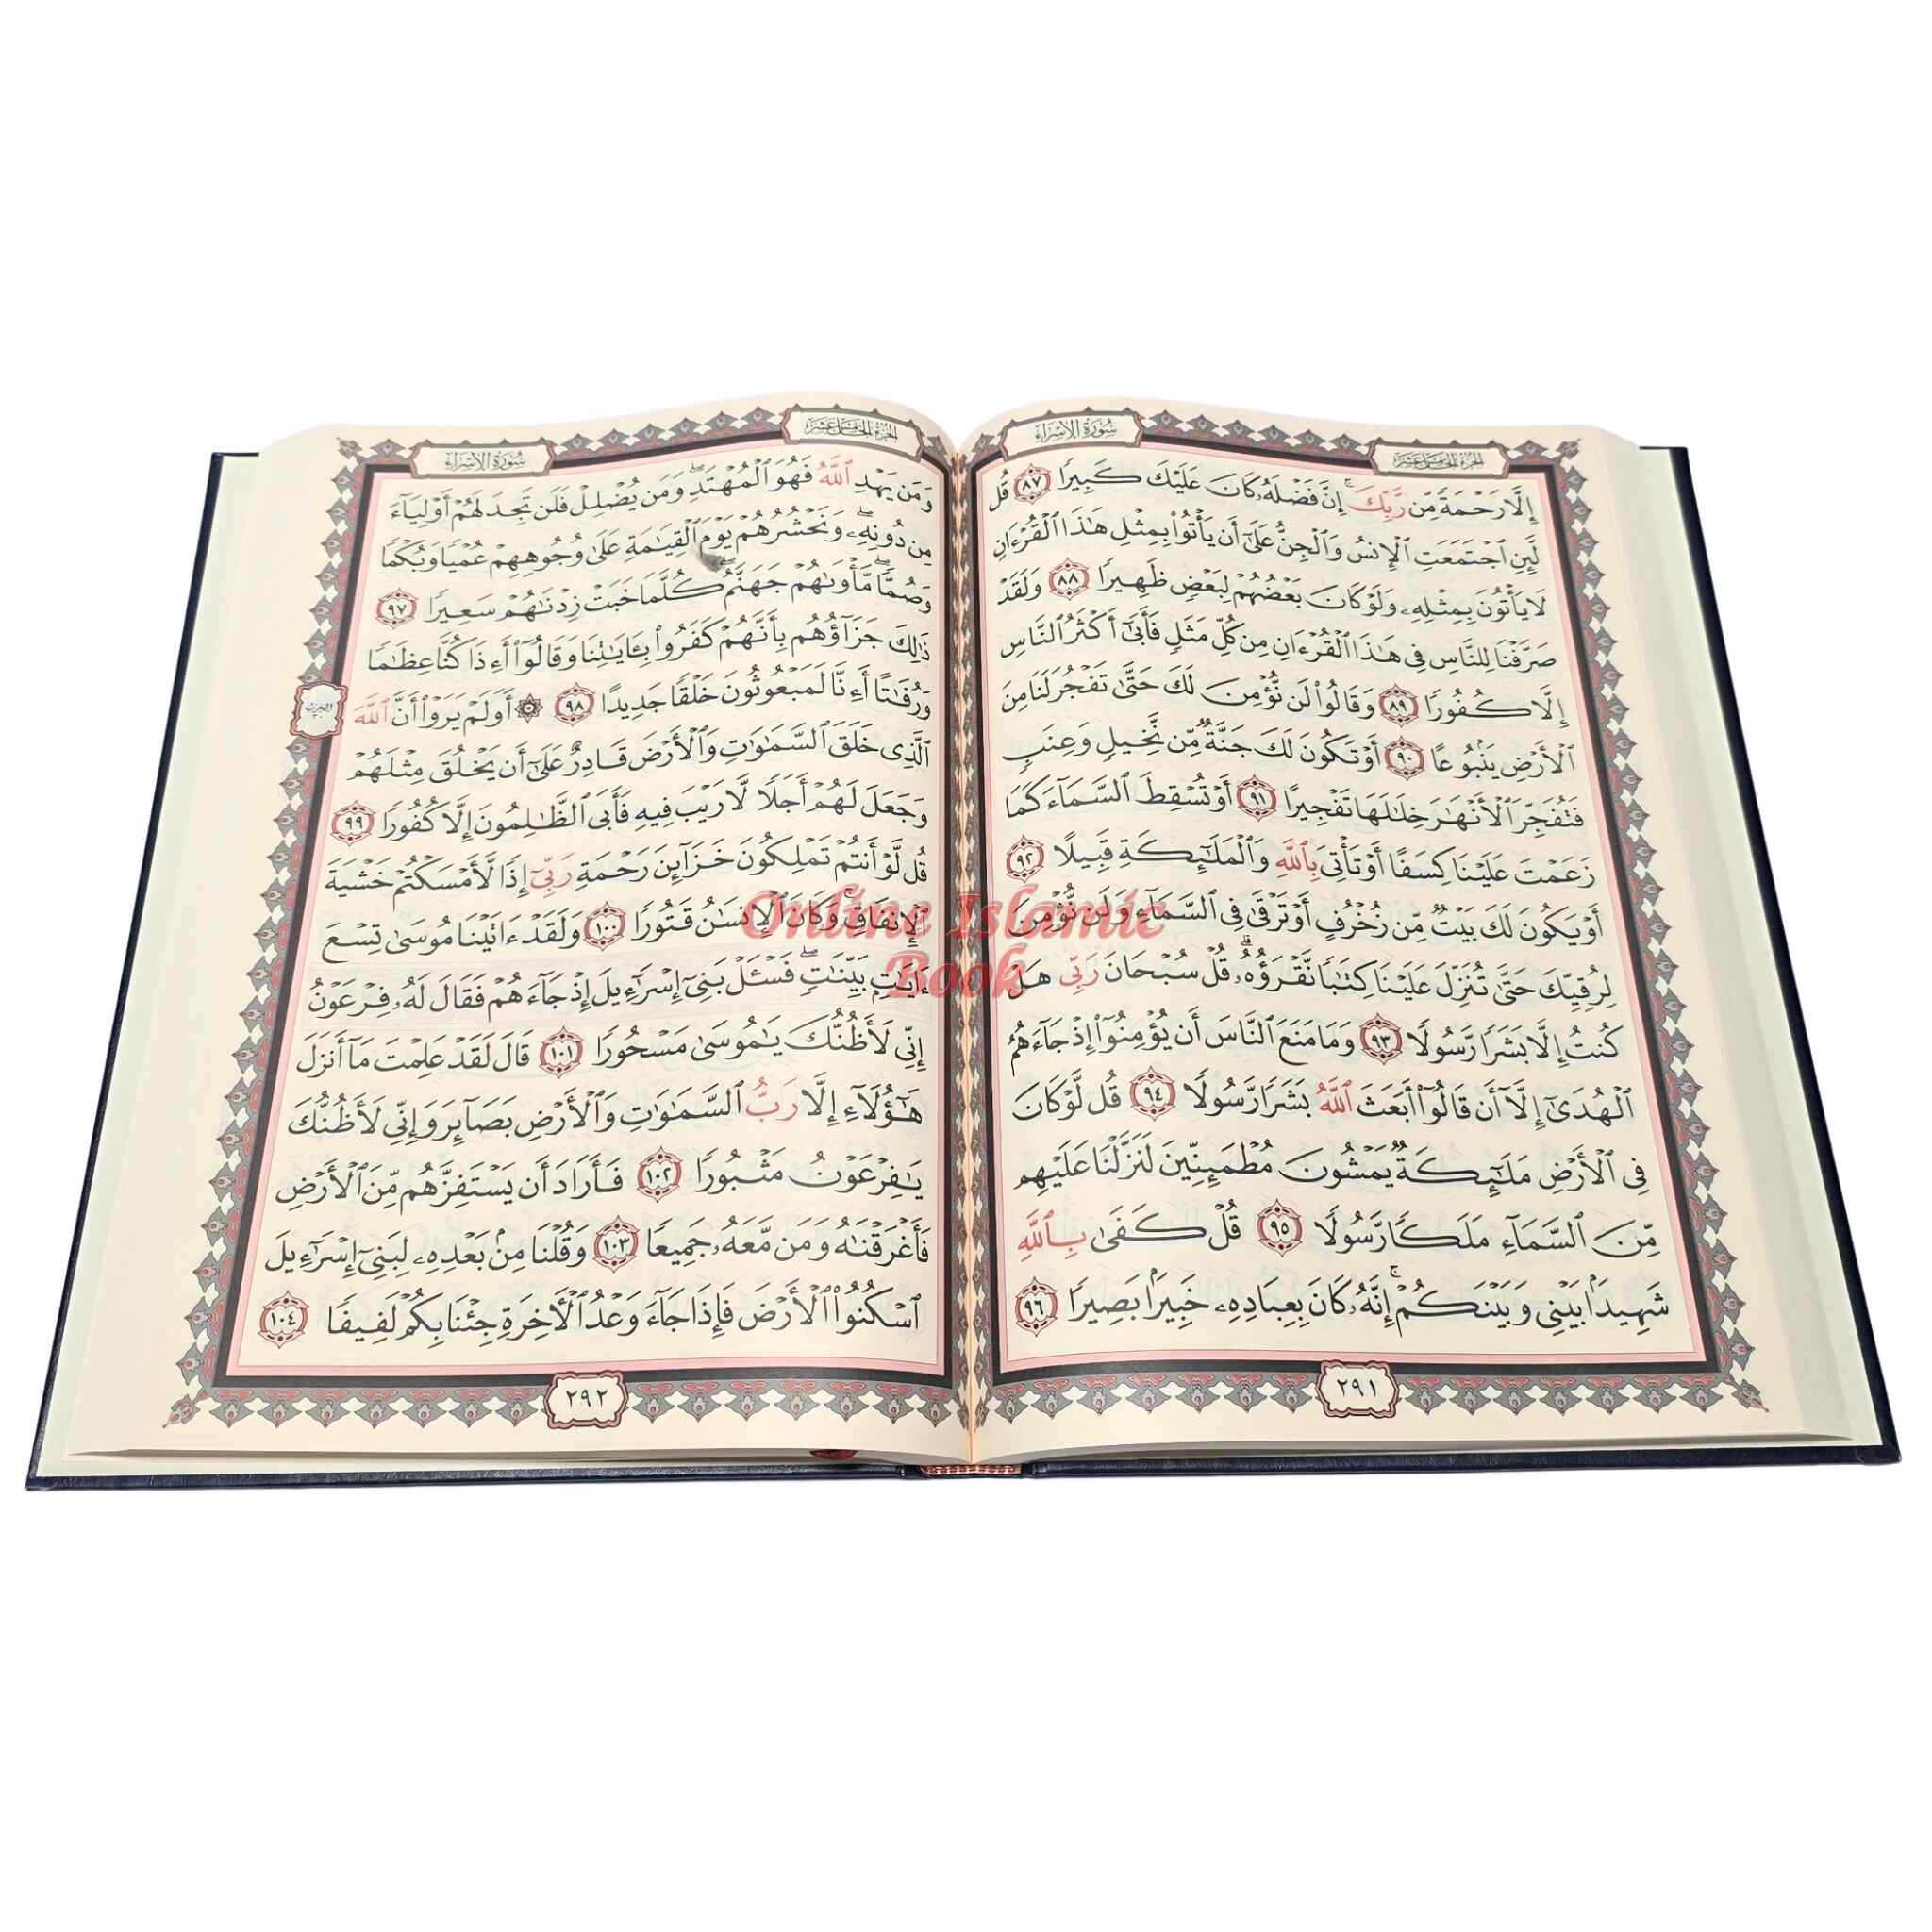 سُورَةُ الإِسْرَاءِ
الجُزْءُ الخَامِسَ عَشَرَ
إِلَّا رَحْمَةً مِّن رَّبِّكَ ۚ إِنَّ فَضْلَهُۥ كَانَ عَلَيْكَ كَبِيرًا ٨٧ قُل
لَّئِنِ ٱجْتَمَعَتِ ٱلْإِنسُ وَٱلْجِنُّ عَلَىٰٓ أَن يَأْتُوا۟ بِمِثْلِ هَـٰذَا ٱلْقُرْءَانِ
لَا يَأْتُونَ بِمِثْلِهِۦ وَلَوْ كَانَ بَعْضُهُمْ لِبَعْضٍ ظَهِيرًا ٨٨ وَلَقَدْ
صَرَّفْنَا لِلنَّاسِ فِى هَـٰذَا ٱلْقُرْءَانِ مِن كُلِّ مَثَلٍ فَأَبَىٰٓ أَكْثَرُ ٱلنَّاسِ
إِلَّا كُفُورًا ٨٩ وَقَالُوا۟ لَن نُّؤْمِنَ لَكَ حَتَّىٰ تَفْجُرَ لَنَا مِنَ
ٱلْأَرْضِ يَنۢبُوعًا ٩٠ أَوْ تَكُونَ لَكَ جَنَّةٌ مِّن نَّخِيلٍ وَعِنَبٍ
فَتُفَجِّرَ ٱلْأَنْهَـٰرَ خِلَـٰلَهَا تَفْجِيرًا ٩١ أَوْ تُسْقِطَ ٱلسَّمَآءَ كَمَا
زَعَمْتَ عَلَيْنَا كِسَفًا أَوْ تَأْتِىَ بِٱللَّهِ وَٱلْمَلَـٰٓئِكَةِ قَبِيلًا ٩٢
أَوْ يَكُونَ لَكَ بَيْتٌ مِّن زُخْرُفٍ أَوْ تَرْقَىٰ فِى ٱلسَّمَآءِ وَلَن نُّؤْمِنَ
لِرُقِيِّكَ حَتَّىٰ تُنَزِّلَ عَلَيْنَا كِتَـٰبًا نَّقْرَؤُهُۥ ۗ قُلْ سُبْحَانَ رَبِّى هَلْ
كُنتُ إِلَّا بَشَرًا رَّسُولًا ٩٣ وَمَا مَنَعَ ٱلنَّاسَ أَن يُؤْمِنُوٓا۟ إِذْ جَآءَهُمُ
ٱلْهُدَىٰٓ إِلَّآ أَن قَالُوٓا۟ أَبَعَثَ ٱللَّهُ بَشَرًا رَّسُولًا ٩٤ قُل لَّوْ كَانَ
فِى ٱلْأَرْضِ مَلَـٰٓئِكَةٌ يَمْشُونَ مُطْمَئِنِّينَ لَنَزَّلْنَا عَلَيْهِم
مِّنَ ٱلسَّمَآءِ مَلَكًا رَّسُولًا ٩٥ قُلْ كَفَىٰ بِٱللَّهِ
شَهِيدًۢا بَيْنِى وَبَيْنَكُمْ ۚ إِنَّهُۥ كَانَ بِعِبَادِهِۦ خَبِيرًۢا بَصِيرًا ٩٦
٢٩١
الجُزْءُ الخَامِسَ عَشَرَ
سُورَةُ الإِسْرَاءِ
وَمَن يَهْدِ ٱللَّهُ فَهُوَ ٱلْمُهْتَدِ ۖ وَمَن يُضْلِلْ فَلَن تَجِدَ لَهُمْ أَوْلِيَآءَ
مِن دُونِهِۦ ۖ وَنَحْشُرُهُمْ يَوْمَ ٱلْقِيَـٰمَةِ عَلَىٰ وُجُوهِهِمْ عُمْيًا وَبُكْمًا
وَصُمًّا ۖ مَّأْوَىٰهُمْ جَهَنَّمُ ۖ كُلَّمَا خَبَتْ زِدْنَـٰهُمْ سَعِيرًا ٩٧
ذَٰلِكَ جَزَآؤُهُم بِأَنَّهُمْ كَفَرُوا۟ بِـَٔايَـٰتِنَا وَقَالُوٓا۟ أَءِذَا كُنَّا عِظَـٰمًا
وَرُفَـٰتًا أَءِنَّا لَمَبْعُوثُونَ خَلْقًا جَدِيدًا ٩٨ ۞ أَوَلَمْ يَرَوْا۟ أَنَّ ٱللَّهَ
ٱلَّذِى خَلَقَ ٱلسَّمَـٰوَٰتِ وَٱلْأَرْضَ قَادِرٌ عَلَىٰٓ أَن يَخْلُقَ مِثْلَهُمْ
وَجَعَلَ لَهُمْ أَجَلًا لَّا رَيْبَ فِيهِ فَأَبَى ٱلظَّـٰلِمُونَ إِلَّا كُفُورًا ٩٩
قُل لَّوْ أَنتُمْ تَمْلِكُونَ خَزَآئِنَ رَحْمَةِ رَبِّىٓ إِذًا لَّأَمْسَكْتُمْ خَشْيَةَ
ٱلْإِنفَاقِ ۚ وَكَانَ ٱلْإِنسَـٰنُ قَتُورًا ١٠٠ وَلَقَدْ ءَاتَيْنَا مُوسَىٰ تِسْعَ
ءَايَـٰتٍۭ بَيِّنَـٰتٍ ۖ فَسْـَٔلْ بَنِىٓ إِسْرَٰٓءِيلَ إِذْ جَآءَهُمْ فَقَالَ لَهُۥ فِرْعَوْنُ
إِنِّى لَأَظُنُّكَ يَـٰمُوسَىٰ مَسْحُورًا ١٠١ قَالَ لَقَدْ عَلِمْتَ مَآ أَنزَلَ
هَـٰٓؤُلَآءِ إِلَّا رَبُّ ٱلسَّمَـٰوَٰتِ وَٱلْأَرْضِ بَصَآئِرَ وَإِنِّى لَأَظُنُّكَ
يَـٰفِرْعَوْنُ مَثْبُورًا ١٠٢ فَأَرَادَ أَن يَسْتَفِزَّهُم مِّنَ ٱلْأَرْضِ
فَأَغْرَقْنَـٰهُ وَمَن مَّعَهُۥ جَمِيعًا ١٠٣ وَقُلْنَا مِنۢ بَعْدِهِۦ لِبَنِىٓ إِسْرَٰٓءِيلَ
ٱسْكُنُوا۟ ٱلْأَرْضَ فَإِذَا جَآءَ وَعْدُ ٱلْـَٔاخِرَةِ جِئْنَا بِكُمْ لَفِيفًا ١٠٤
٢٩٢
Online Islamic
Book